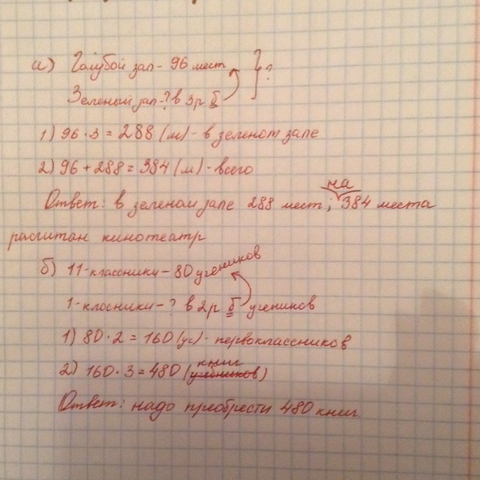 а) Голубой зал - 96 мест
Зеленом зал - ? в 3р б } ?
1) 96 · 3 = 288 (м) - в зеленом зале
2) 96 + 288 = 384 (м) - всего
Ответ: в зеленом зале 288 мест; на 384 места
расчитан кинотеатр
б) 11-классники - 80 учеников
1-класники - ? в 2р б учеников
1) 80 · 2 = 160 (уч) - первоклассников
2) 160 · 3 = 480 (учебников книг)
Ответ: надо преобрести 480 книг